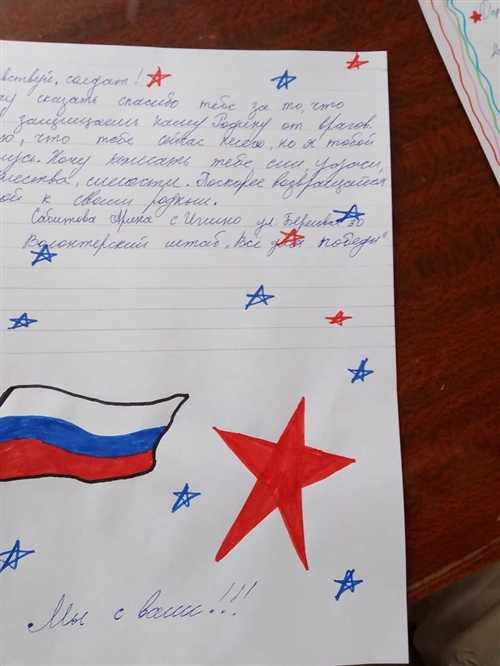 вствуй, солдат!
у сказать спасибо тебе за то, что
защищаешь нашу Родину от врагов.
ю, что тебе сейчас нелегко, но я тобой
усь. Хочу пожелать тебе силы,
жества, смелости. Поскорее возвращайся
ой к своим родным.
Сабитова с ул 30
Волонтерский штаб „Все для победы"
Мы с вами!!!